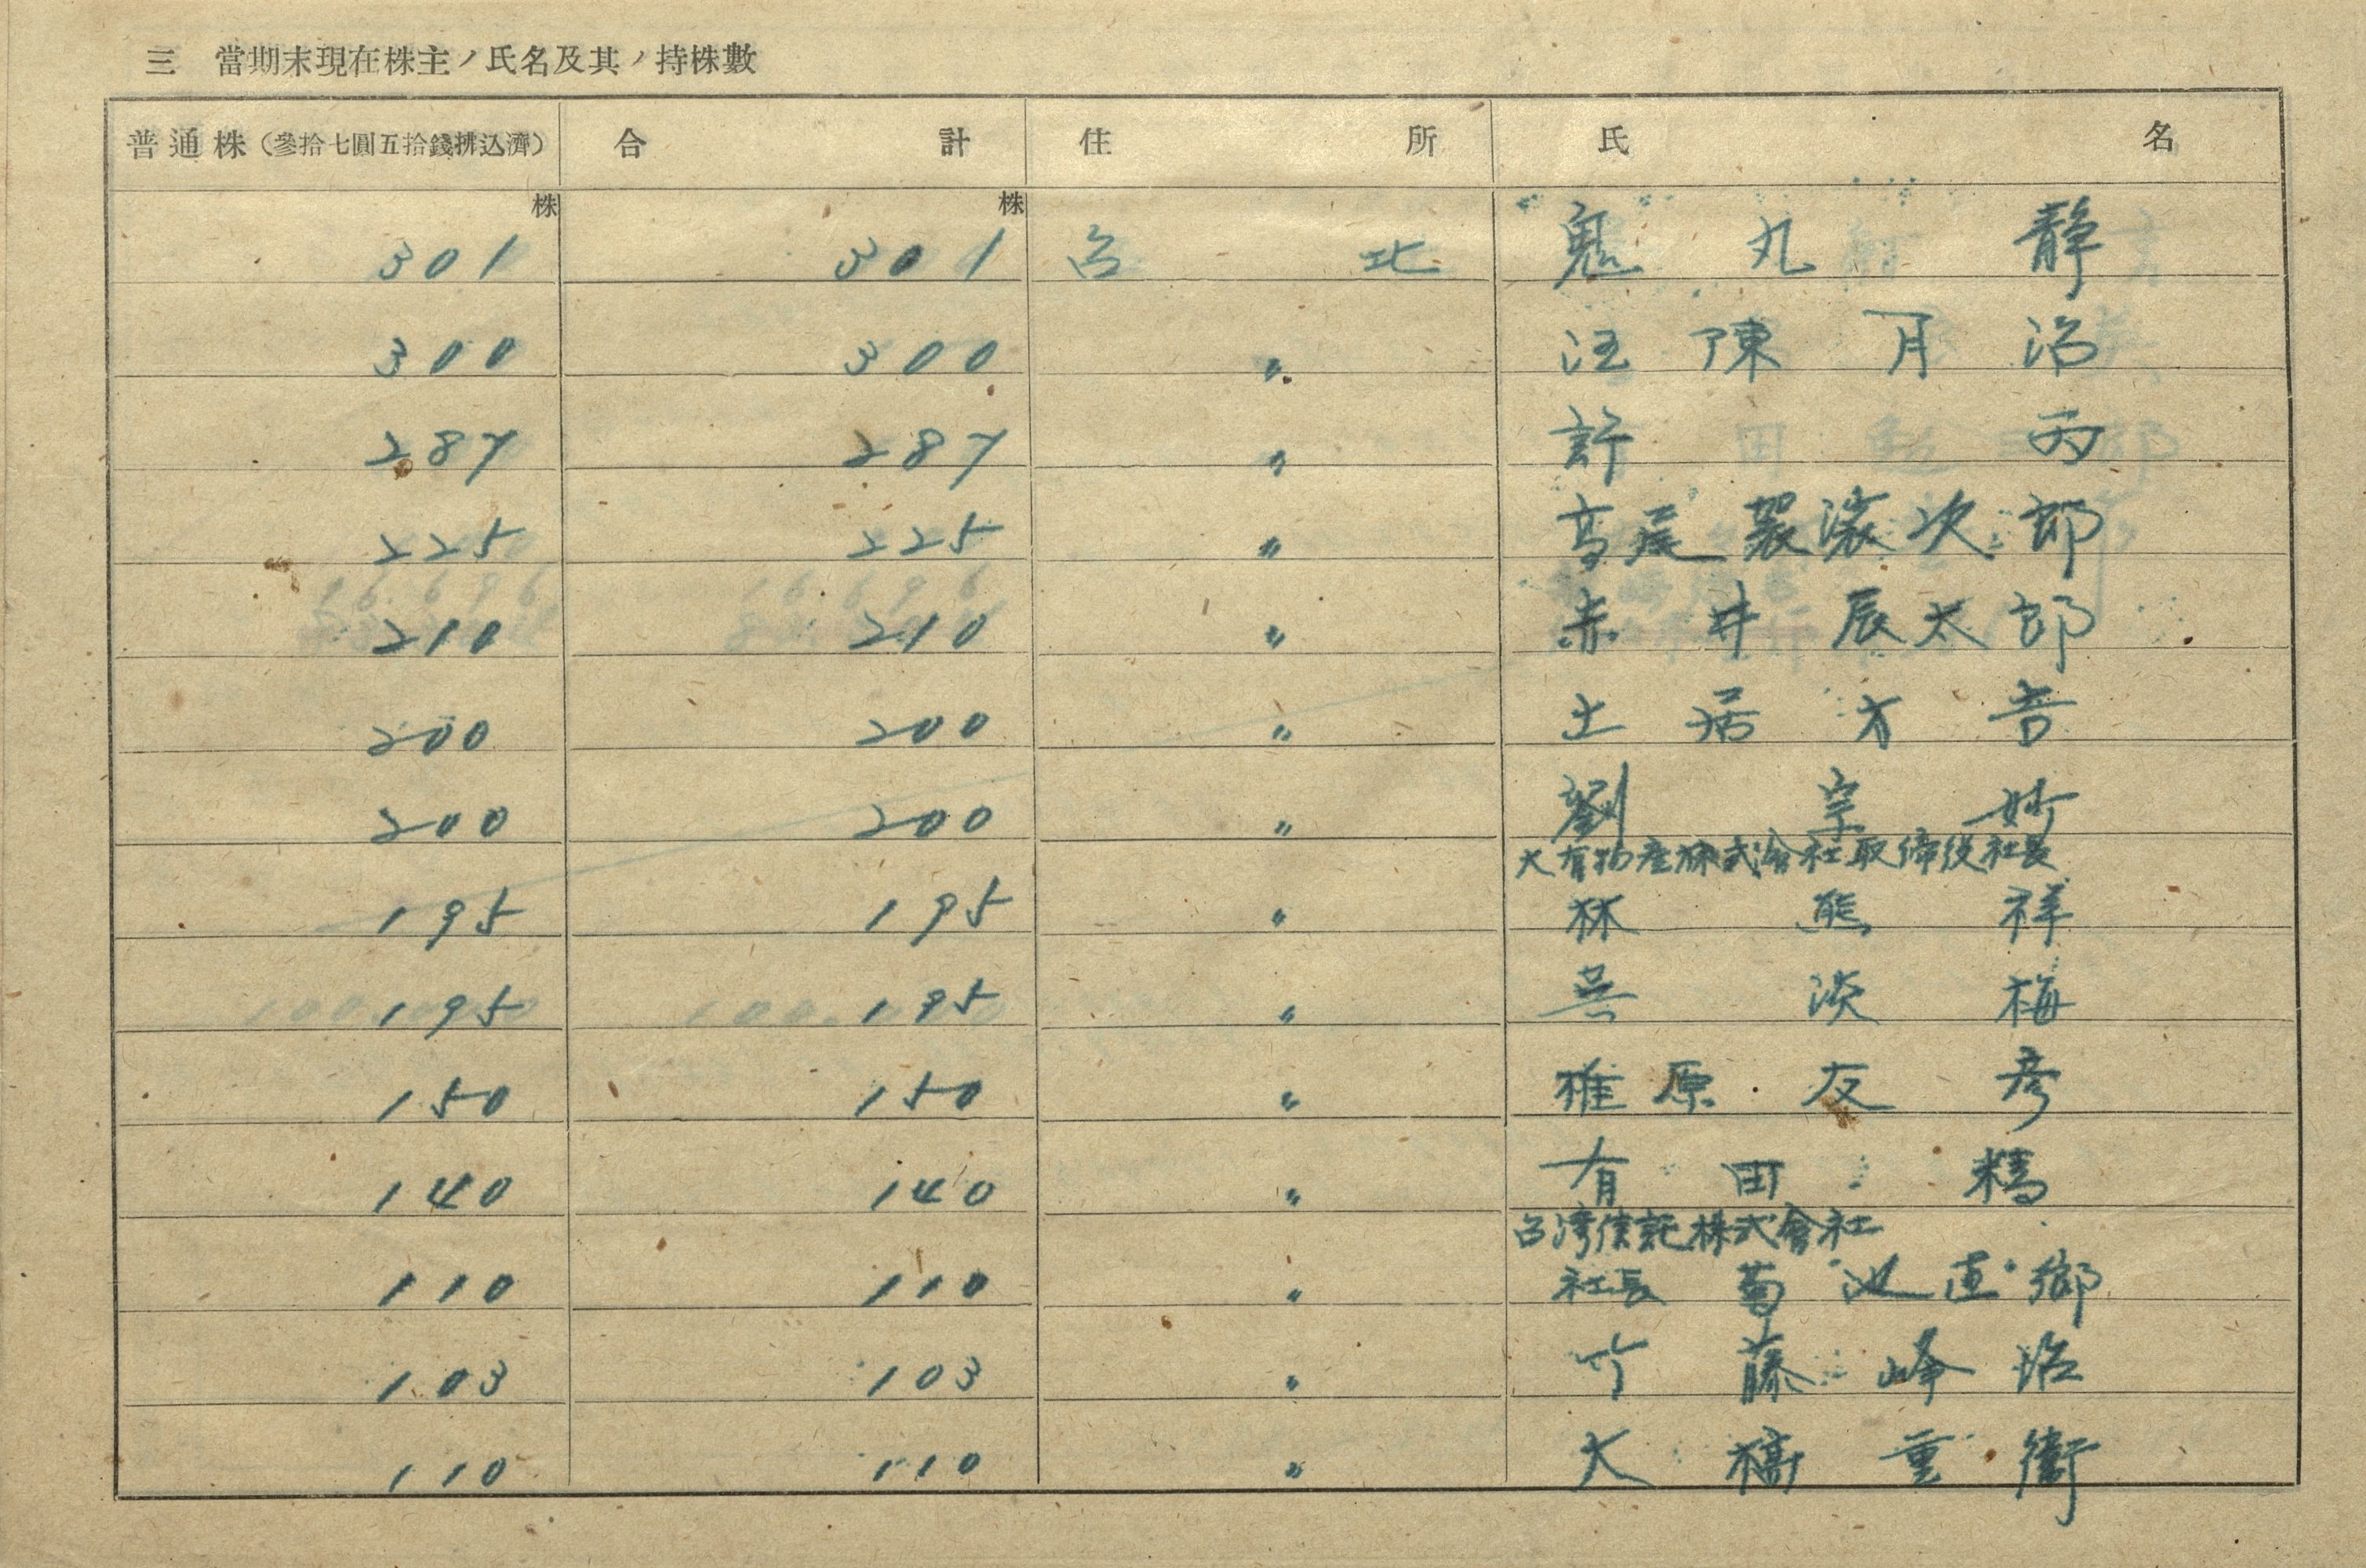 三 當期末現在株主ノ氏名及其ノ持株數
普通株(參拾七圓五拾錢拂込濟) 合計 住所 氏名
株 株
301 301 台北 鬼丸靜
300 300 〃 汪陳月治
287 287 〃 許丙
225 225 〃 高尾袈裟次郎
210 210 〃 赤井辰太郎
200 200 〃 土居才吉
200 200 〃 劉宗妙
大有物産株式會社取締役社長
195 195 〃 林熊祥
195 195 〃 吳淡梅
150 150 〃 椎原友彦
140 140 〃 有田精
台湾信託株式會社
110 110 〃 社長 菊池直郷
103 103 〃 竹藤峰治
110 110 〃 大橋重衛